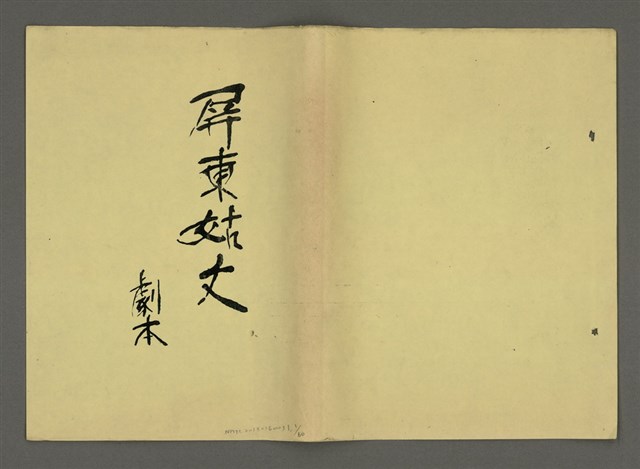 屏東姑丈
劇本